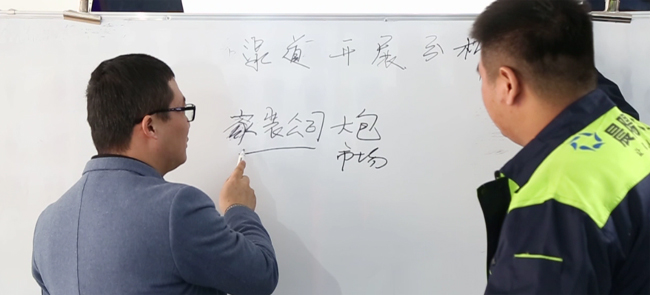 渠道开展分析
家装公司 大包
市场